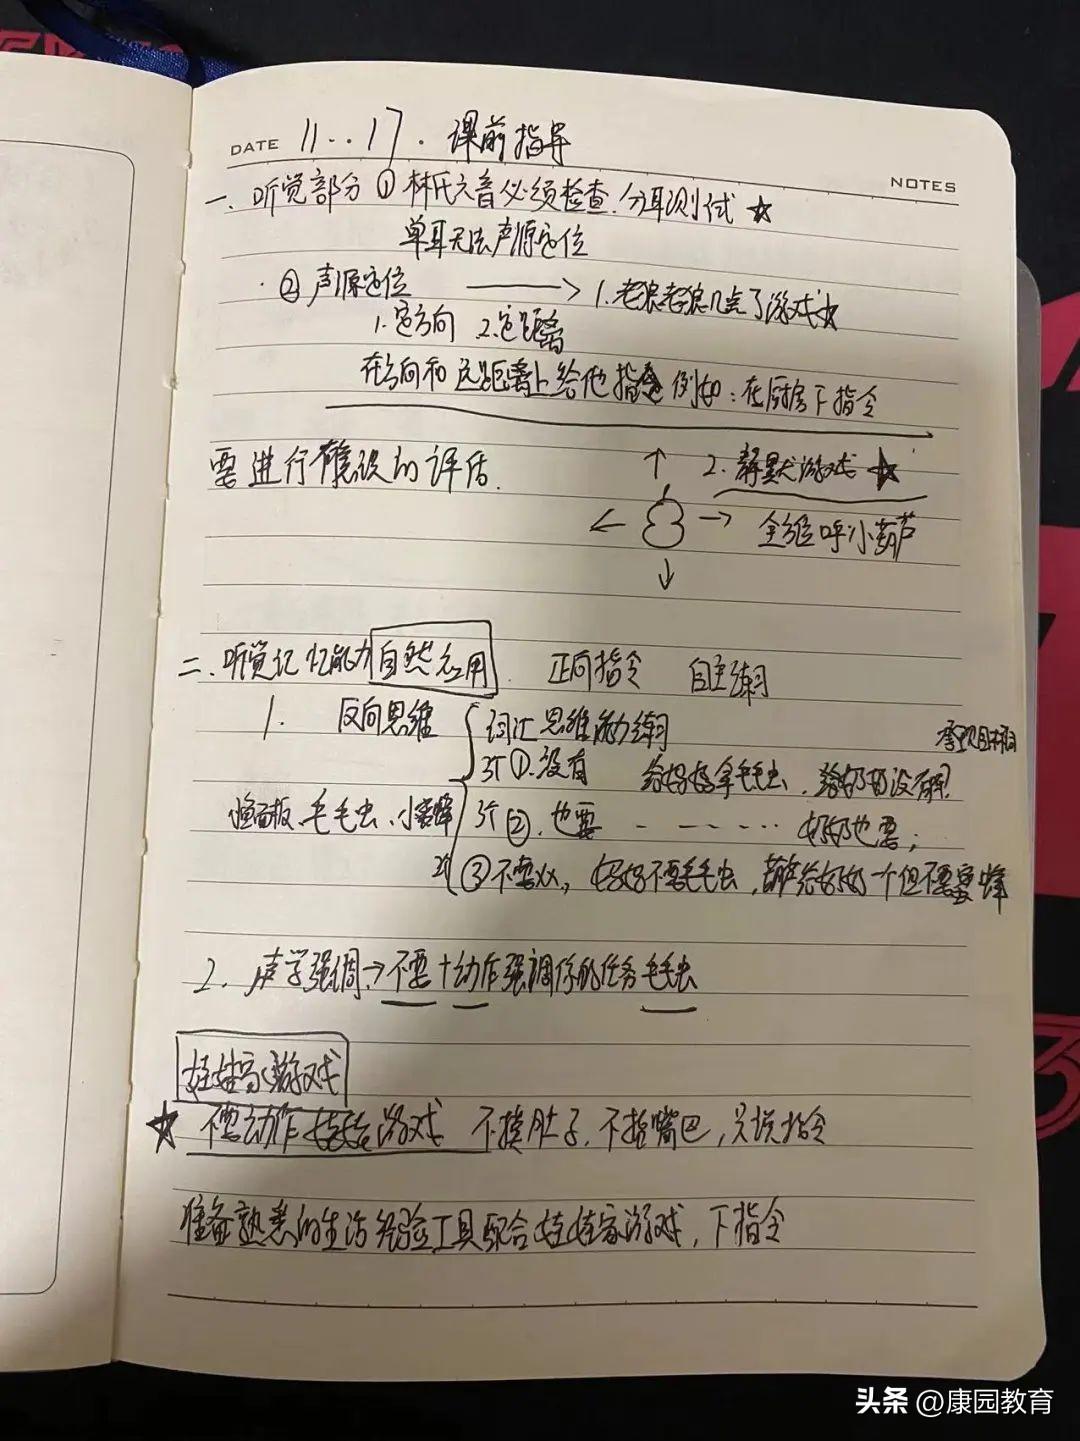 DATE 11..17. 课前指导
NOTES
一、听觉部分 ① 林氏六音必须检查.分耳测试 ☆
单耳无法声源定位
② 声源定位 → 1.老狼老狼几点了游戏☆
1.定方向 2.定距离
在方向和远距离上给他指令 例如:在厨房下指令
要进行 的评估.
2.静默游戏 ★
↑
← → 呼小葫芦
↓
二.听觉记忆能力自然应用 正向指令 自主练习
1. 反向思维 词汇思维能力练习
3个①.没有 给妈妈拿毛毛虫,给奶奶没有啊!
毛毛虫、小蜜蜂 3个②.也要 ------ 奶奶也要;
2个③不要xx, 妈妈不要毛毛虫,葫芦给奶奶一个但不要蜜蜂
2. 声学强调→不要+动作强调你的任务毛毛虫
娃娃家游戏
☆ 不要动作 娃娃游戏 不摸肚子,不指嘴巴,只说指令
准备熟悉的生活经验工具配合娃娃家游戏,下指令
头条 @康园教育